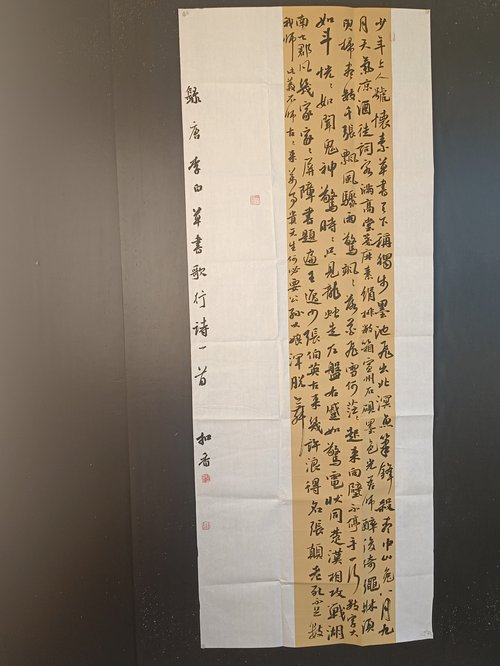 少年上人號懷素草書天下稱獨步墨池飛出北溟魚筆鋒殺盡中山兔八月九
月天氣凉酒徒詞客滿高堂箋麻素絹排數箱宣州石硯墨色光吾師醉後倚繩牀須
臾掃盡數千張飄風驟雨驚颯〻落花飛雪何茫〻起來向壁不停手一行數字大
如斗恍〻如聞鬼神驚時〻只見龍蛇走左盤右蹙如驚電狀同楚漢相攻戰湖
南七郡凡幾家家〻屏障書題遍王逸少張伯英古來幾許浪得名張顛老死不足數
我師此義不師古〻來萬事貴天生何必要公孫大娘渾脫舞
錄唐李白草書歌行詩一首 和香